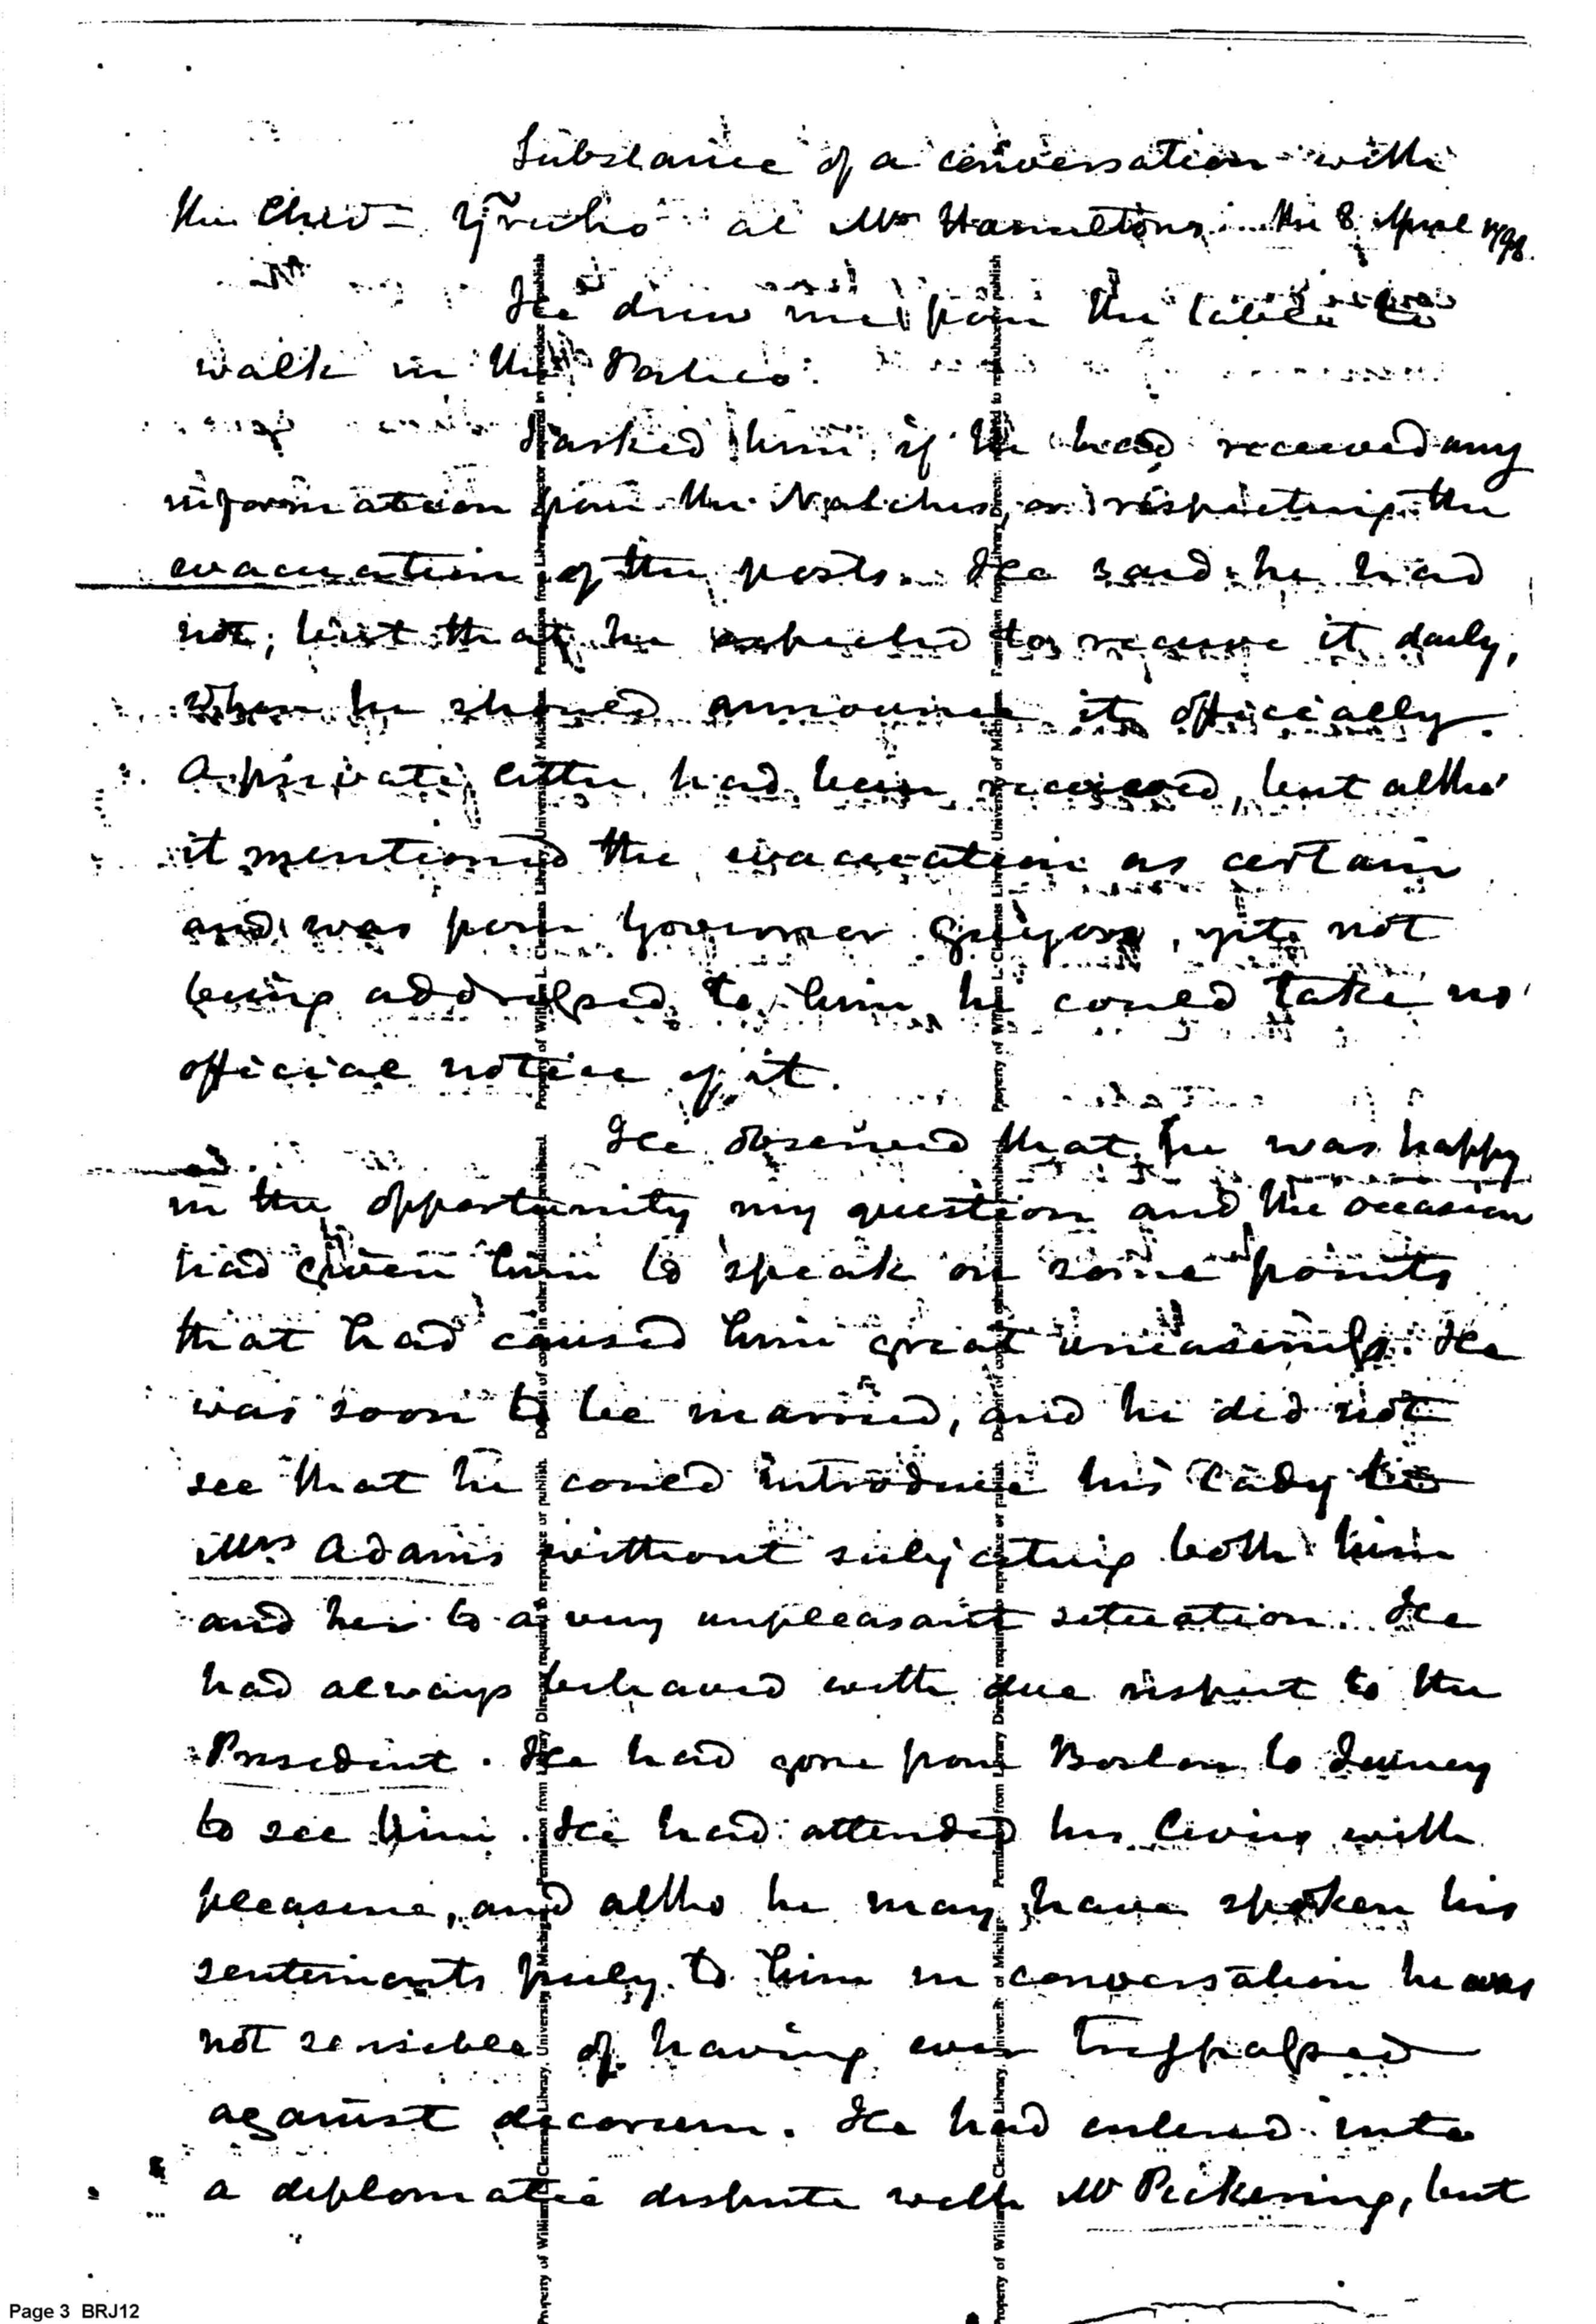 Substance of a conversation with
the Chev= Yrucho at Mr Hamiltons the 8 April 1798.
He drew me from the table to
walk in the Portico.
I asked him if he had received any
information from the Natches, or respecting the
evacuation of the posts. He said he had
not; but that he expected to receive it daily,
when he should announce it officially.
A private letter had been received, but altho'
it mentioned the evacuation as certain
and was from Governor Gayoso, yet not
being addressed to him he could take no
official notice of it.
He observed that he was happy
in the opportunity my question and the occasion
had given him to speak on some points
that had caused him great uneasiness. He
was soon to be married, and he did not
see that he could introduce his Lady to
Mrs Adams without subjecting both him
and her to a very unpleasant situation. He
had always behaved with due respect to the
President. He had gone from Boston to Quincy
to see him. He had attended his levees with
pleasure, and altho he may have spoken his
sentiments freely to him in conversation he was
not sensible of having ever trespassed
against decorum. He had entered into
a diplomatic dispute with Mr Pickering, but
Page 3 BRJ12